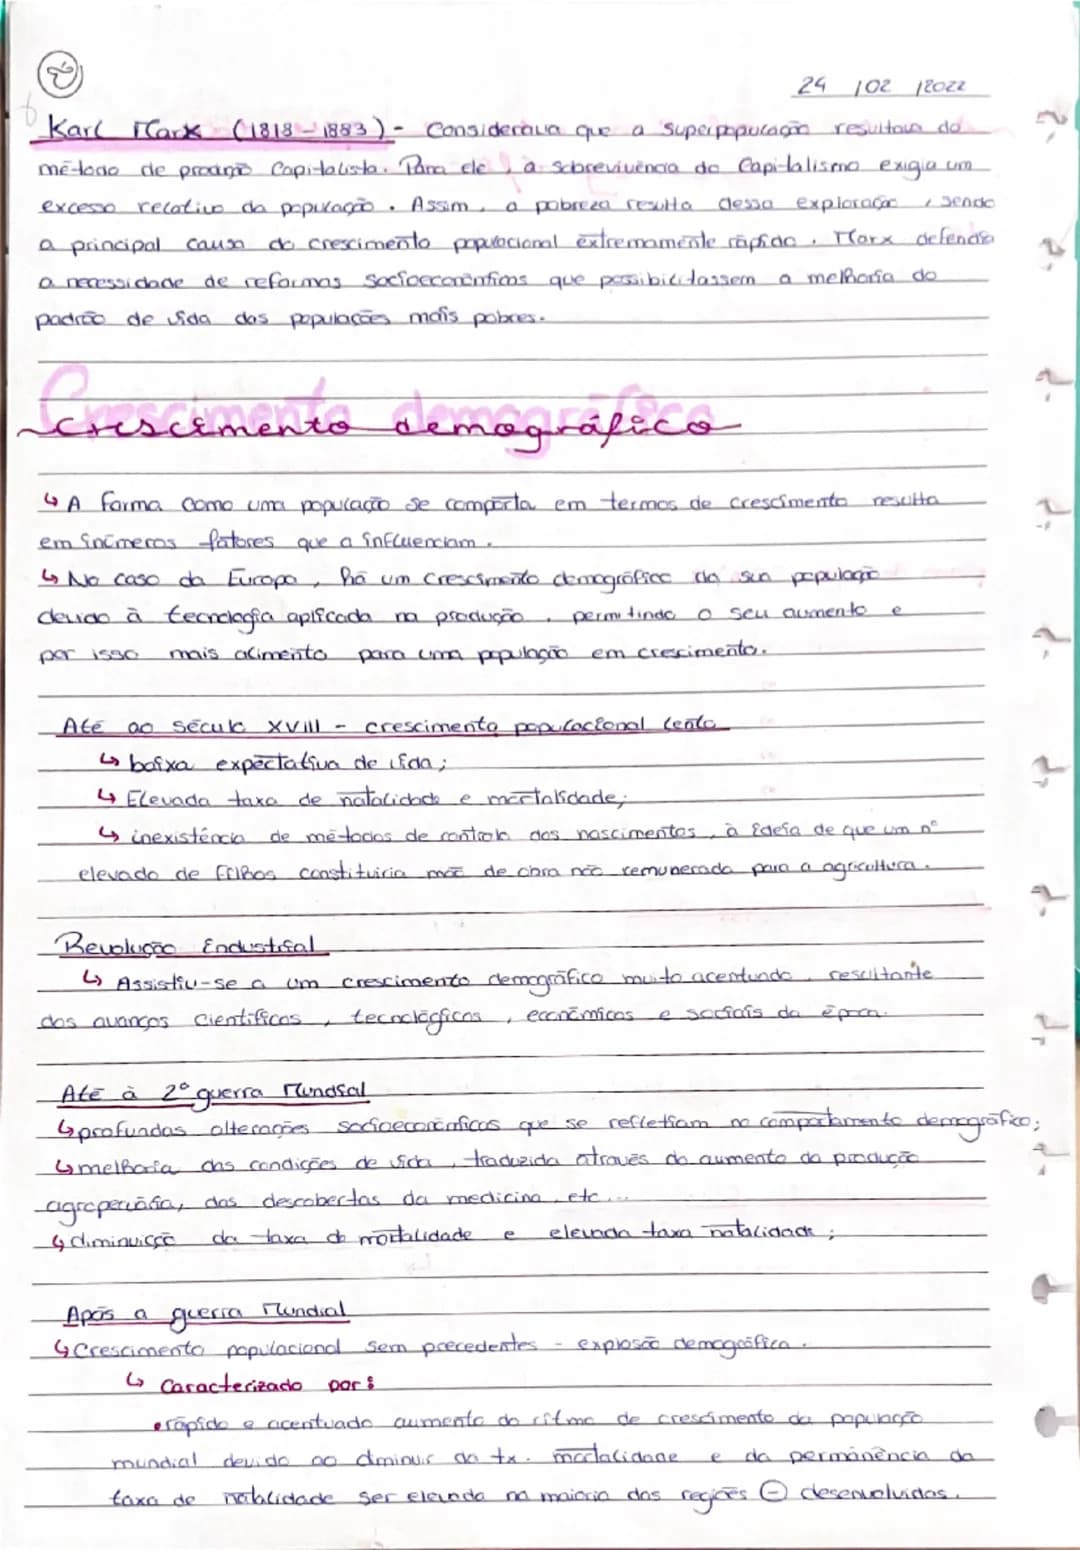 24 / 02 / 2022
Karl Marx (1818 - 1883) - Considerava que a superpopulação resultava do
método de produção Capitalista. Para ele, a sobrevivência do Capitalismo exigia um
excesso relativo da população. Assim, a pobreza resulta dessa exploração, sendo
a principal causa do crescimento populacional extremamente rápido. Marx defendia
a necessidade de reformas socioeconómicas que possibilitassem a melhoria do
padrão de vida das populações mais pobres.
Crescimento demográfico
↳ A forma como uma população se comporta em termos de crescimento resulta
em inúmeros fatores que a influenciam.
↳ No caso da Europa, há um crescimento demográfico da sua população
devido à tecnologia aplicada na produção, permitindo o seu aumento e
por isso mais alimento para uma população em crescimento.
Até ao século XVIII - crescimento populacional lento
↳ baixa expectativa de vida;
↳ Elevada taxa de natalidade e mortalidade;
↳ inexistência de métodos de controlo dos nascimentos, à ideia de que um nº
elevado de filhos constituiria mão de obra não remunerada para a agricultura.
Revolução Industrial
↳ Assistiu-se a um crescimento demográfico muito acentuado, resultante
dos avanços científicos, tecnológicos, económicos e sociais da época.
Até à 2º guerra Mundial
↳ profundas alterações socioeconómicas que se refletiam no comportamento demográfico;
↳ melhoria das condições de vida, traduzida através do aumento da produção
agropecuária, das descobertas da medicina, etc...
↳ diminuição da taxa de mortalidade e elevada taxa natalidade;
Após a guerra Mundial
↳ Crescimento populacional sem precedentes - explosão demográfica.
↳ Caracterizado por:
• rápido e acentuado aumento do ritmo de crescimento da população
mundial devido ao diminuir da tx. mortalidade e da permanência da
taxa de natalidade ser elevada na maioria das regiões ⊖ desenvolvidas.